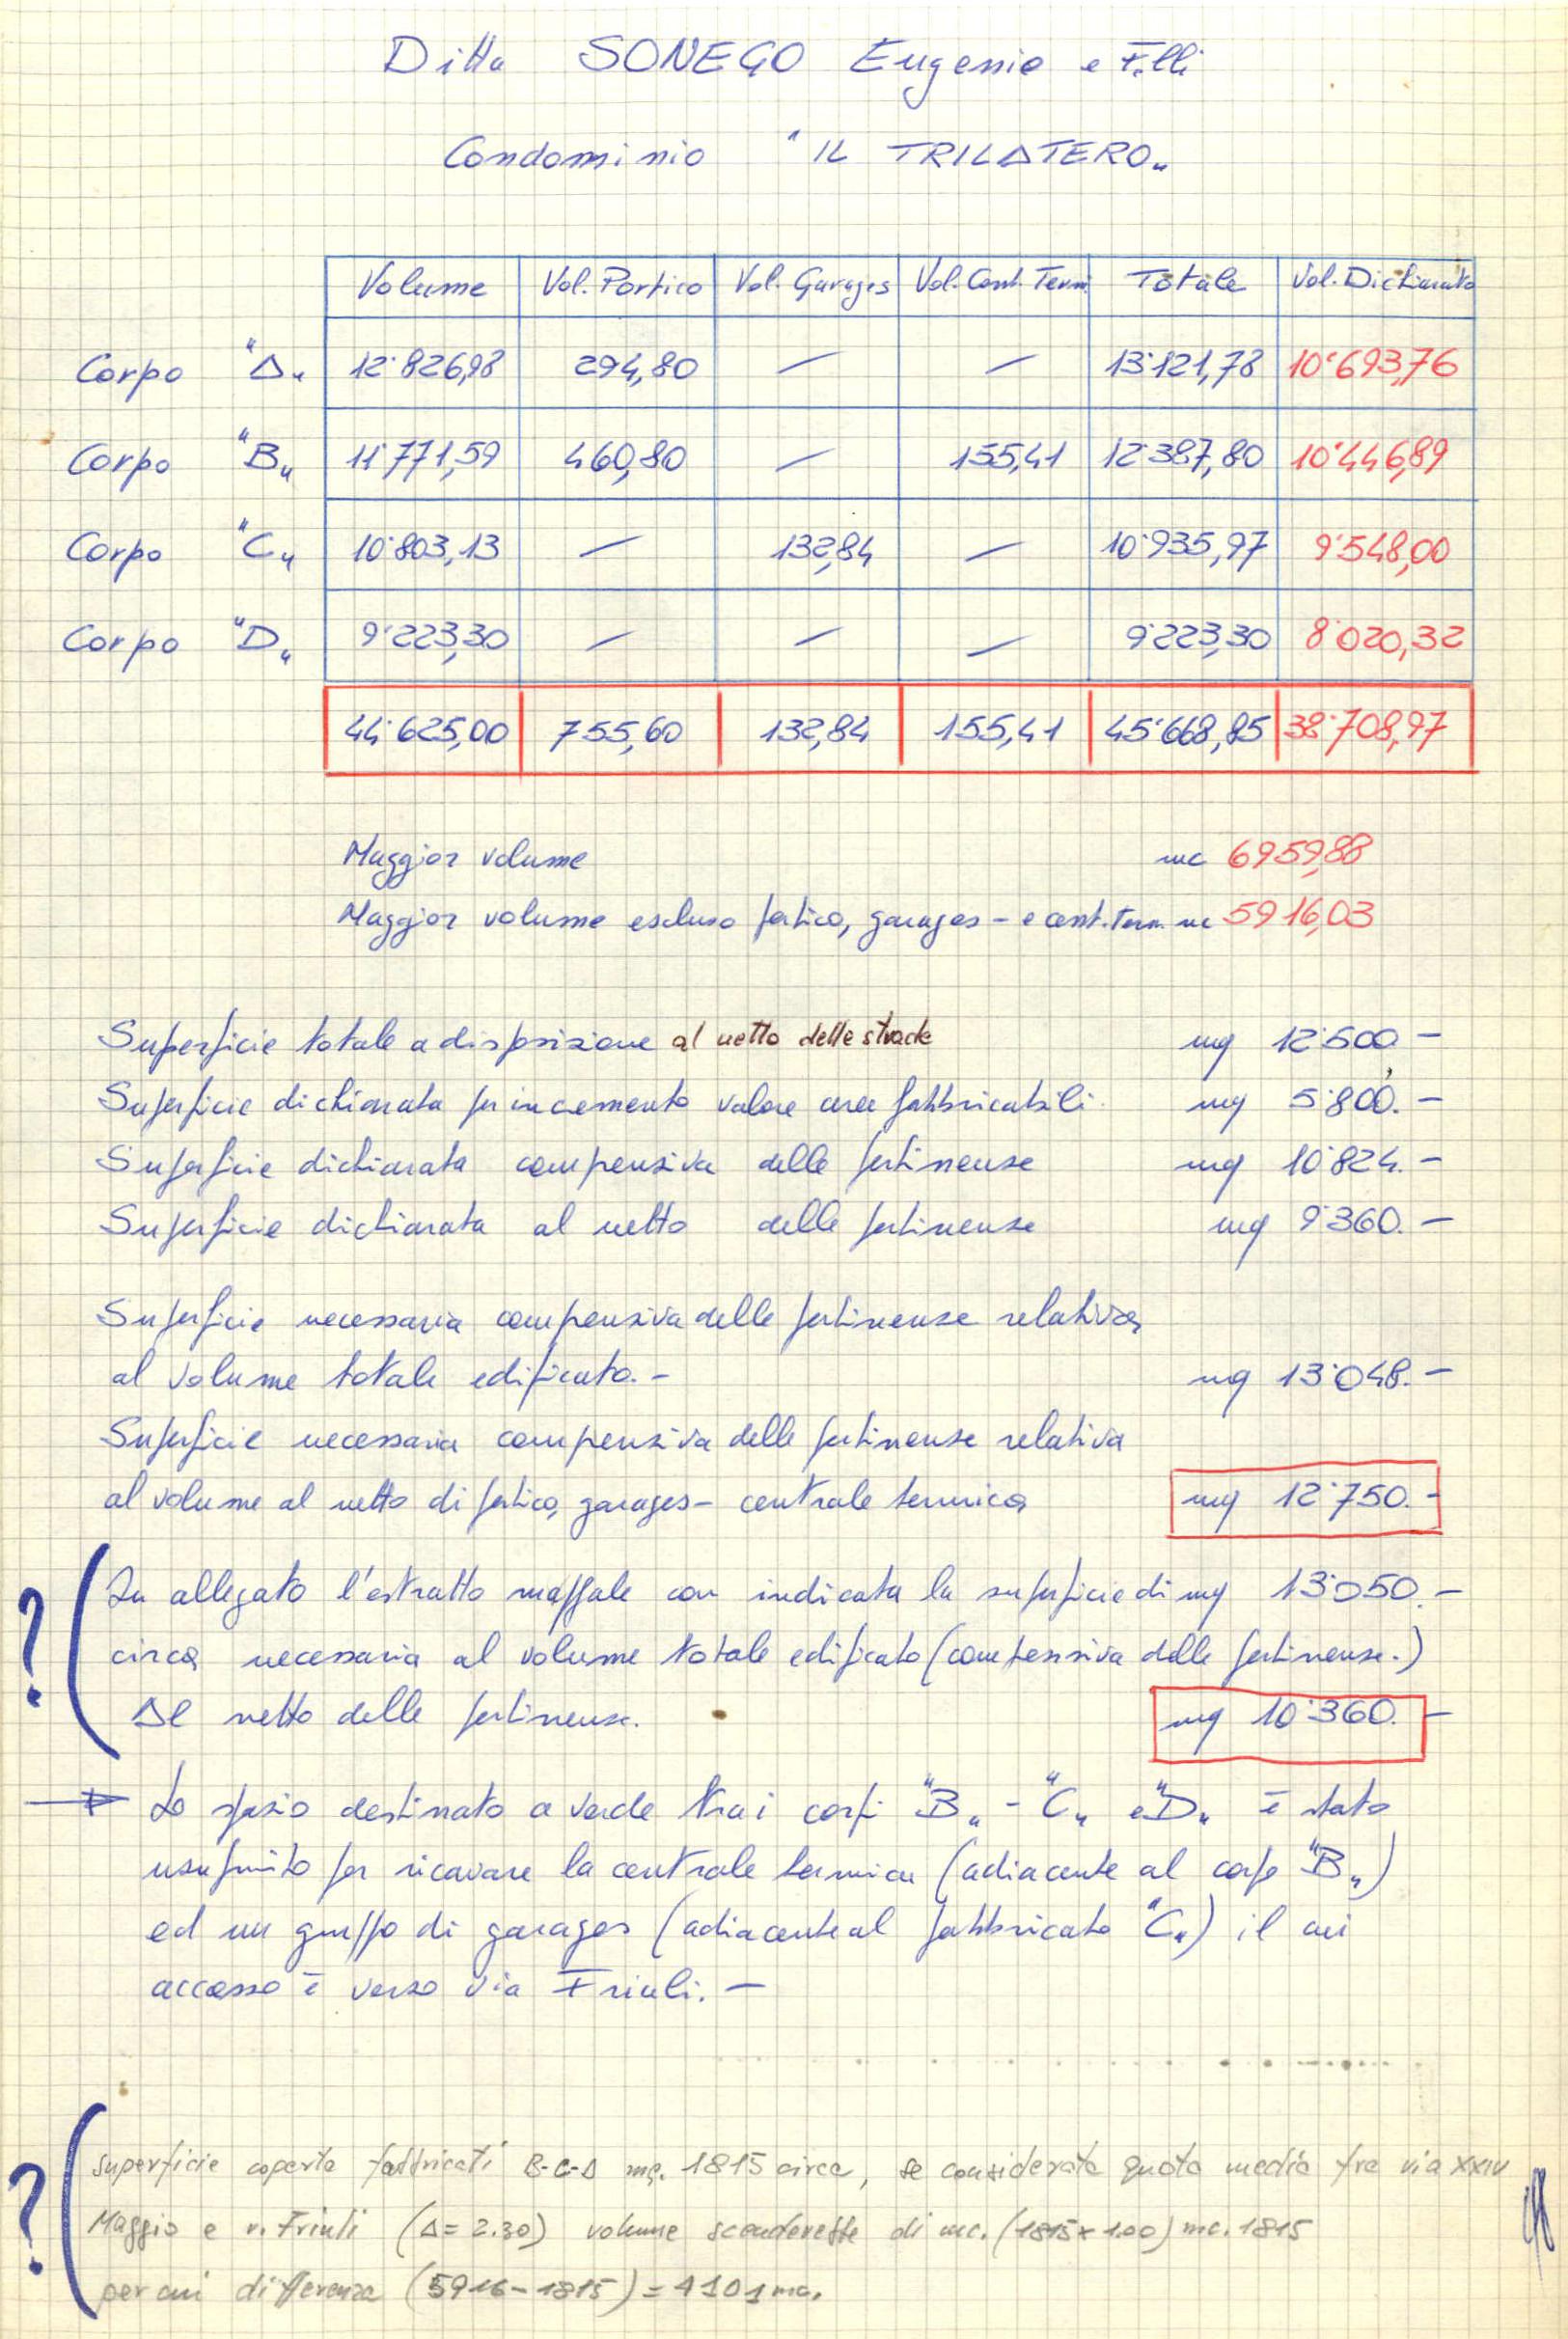 Ditta SONEGO Eugenio e F.lli
Condominio "IL TRILATERO„
Volume Vol. Portico Vol. Garages Vol. Cent. Term. Totale Vol. Dichiarato
Corpo "A„ 12'826,98 294,80 — — 13'121,78 10'693,76
Corpo "B„ 11'771,59 460,80 — 155,41 12'387,80 10'446,89
Corpo "C„ 10'803,13 — 132,84 — 10'935,97 9'548,00
Corpo "D„ 9'223,30 — — — 9'223,30 8'020,32
44'625,00 755,60 132,84 155,41 45'668,85 38'708,97
Maggior volume mc 6959,88
Maggior volume escluso portico, garages - e cent. term. mc 5916,03
Superficie totale a disposizione al netto delle strade mq 12'500 -
Superficie dichiarata per incremento valore aree fabbricabili mq 5'800. -
Superficie dichiarata compensiva delle pertinenze mq 10'824. -
Superficie dichiarata al netto delle pertinenze mq 9'360. -
Superficie necessaria compensiva delle pertinenze relativa
al volume totale edificato. - mq 13'048. -
Superficie necessaria compensiva delle pertinenze relativa
al volume al netto di portico, garages - centrale termica mq 12'750. -
? ( In allegato l'estratto mappale con indicata la superficie di mq 13'050. -
circa necessaria al volume totale edificato (compensiva delle pertinenze.)
Al netto delle pertinenze. mq 10'360. -
Lo spazio destinato a verde tra i corpi "B„ - "C„ e "D„ è stato
usufruito per ricavare la centrale termica (adiacente al corpo "B„)
ed un gruppo di garages (adiacente al fabbricato "C„) il cui
accesso è verso via Friuli. -
? ( superficie coperta fabbricati B-C-D mq. 1815 circa, se considerata quota media fra via XXIV
Maggio e v. Friuli (Δ= 2.30) volume scenderebbe di mc. (1815x1.00) mc. 1815
per cui differenza (5916-1815) = 4101 mc.